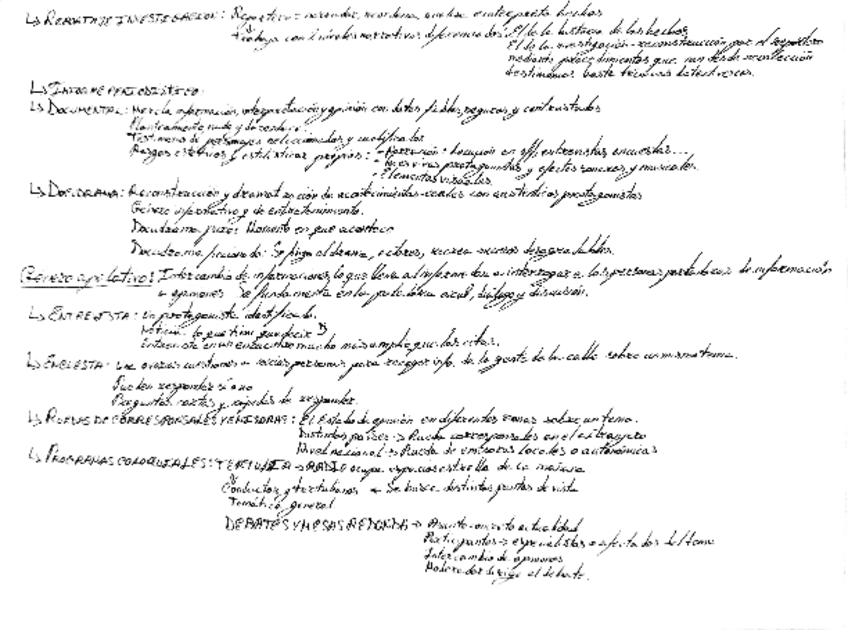 ↳ REPORTAJE INVESTIGACION: Reportero = narrador, recordena, analiza e interpreta hechos
Trabaja con 2 niveles narrativos diferenciados: El de la historia de los hechos
El de la investigación - reconstrucción por el reportero
mediante procedimientos que van desde recolección
testimonios hasta técnicas detectivescas.
↳ INFORME PERIODISTICO
↳ DOCUMENTAL: Mezcla información, interpretación y opinión con datos fiables, seguros y contrastados
Planteamiento, nudo y desenlace.
Testimonio de personajes seleccionados y cualificados
Rasgos estéticos y estilísticos propios: - Narración: locución en off, entrevistas, encuestas...
- voces protagonistas y efectos sonoros y musicales.
- Elementos visuales
↳ DOCUDRAMA: Reconstrucción y dramatización de acontecimientos reales con auténticos protagonistas
Género informativo y de entretenimiento.
Docudrama puro: Momento en que acontece
Docudrama ficcionado: Se finge el drama, actores, recrea sucesos desagradables.
Género apelativo: Intercambio de informaciones, lo que lleva al informador a interrogar a las personas portadoras de información
u opiniones Se fundamenta en la palabra oral, diálogo y discusión.
↳ ENTREVISTA: Un protagonista identificado.
Noticia: lo que tiene que decir
Entrevista en un encuentro mucho más amplio que las citas.
↳ ENCUESTA: Una o varias cuestiones a varias personas para recoger info. de la gente de la calle sobre un mismo tema.
Pueden responder sí o no
Preguntas cortas y rápidas de responder.
↳ RUEDAS DE CORRESPONSALES Y EMISORAS: El Estado de opinión en diferentes zonas sobre un tema.
Distintos países → Rueda corresponsales en el extranjero
Nivel nacional → Rueda de emisoras locales o autonómicas
↳ PROGRAMAS COLOQUIALES: TERTULIA → RADIO ocupa espacios estrella de la mañana
Conductor y tertulianos → Se busca distintos puntos de vista
Temática general
DEBATES Y MESAS REDONDA → Asunto concreto actualidad
Participantes → especialistas o afectados del tema
Intercambio de opiniones
Moderador dirige el debate.